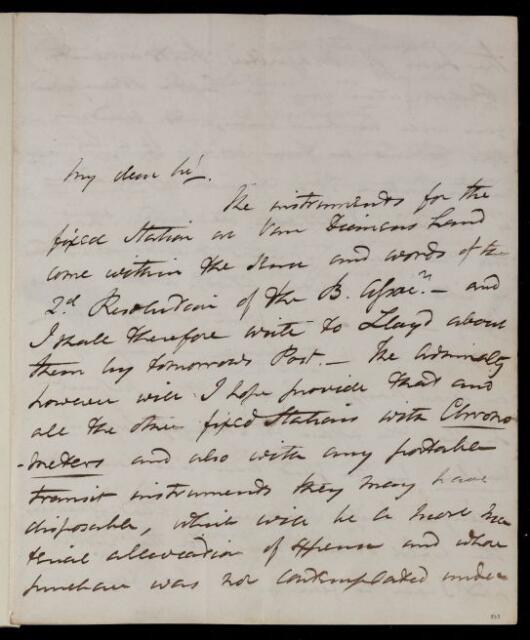 My dear Sir.
The instruments for the
fixed Station on Van Diemens Land
come within the sense and words of the
2.d Resolution of the B. Assoc.n – and
I shall therefore write to Lloyd about
them by tomorrows Post. – The Admiralty
however will I hope provide that and
all the other fixed Stations with Chrono
-meters and also with any portable
transit instruments they may have
disposable, which will be a more ma
terial alleviation of expense and whose
purchase was not contemplated under